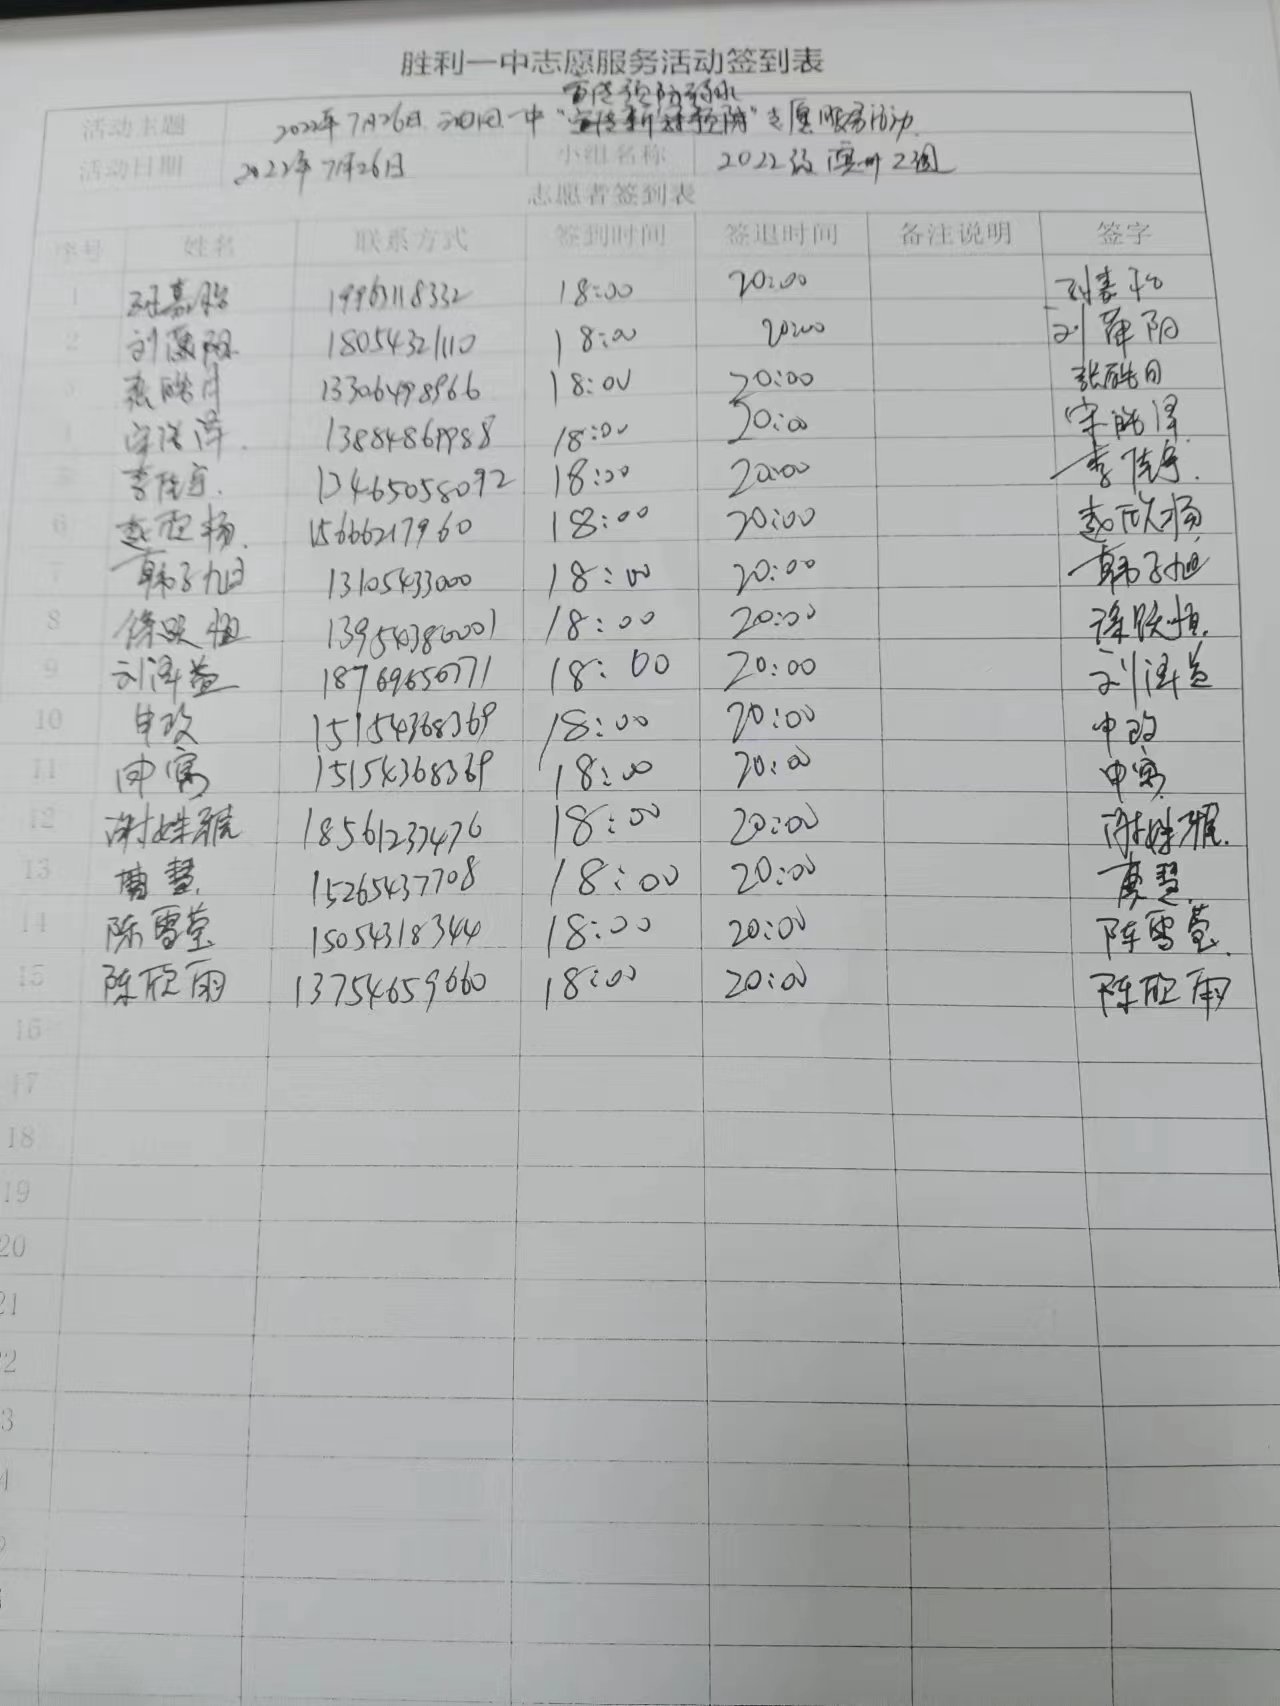 胜利一中志愿服务活动签到表
宣传预防溺水
活动主题 2022年7月26日 一中"宣传新冠预防"志愿服务活动
活动日期 2022年7月26日 小组名称 2022级
志愿者签到表
序号 姓名 联系方式 签到时间 签退时间 备注说明 签字
1 19963118332 18:00 20:00
2 刘 阳 18054321110 18:00 20:00 刘 阳
3 13306498966 18:00 20:00 张皓月
宋浩泽 13884869988 18:00 20:00 宋皓泽
李佳宜 13465058092 18:00 20:00 李佳宜
6 赵欣杨 15666217960 18:00 20:00 赵欣杨
7 韩子旭 13105433000 18:00 20:00 韩子旭
8 徐 恒 139540380001 18:00 20:00 徐 恒
9 刘泽益 18769650771 18:00 20:00 刘泽益
10 申政 15154368369 18:00 20:00 申政
11 申寓 15154368369 18:00 20:00 申寓
12 谢姝 18561237476 18:00 20:00 谢姝
13 曹慧 15265437708 18:00 20:00 曹慧
14 陈雪莹 15054318344 18:00 20:00 陈雪莹
15 陈欣雨 13754659660 18:00 20:00 陈欣雨
16
17
18
19
20
21
22
3
4